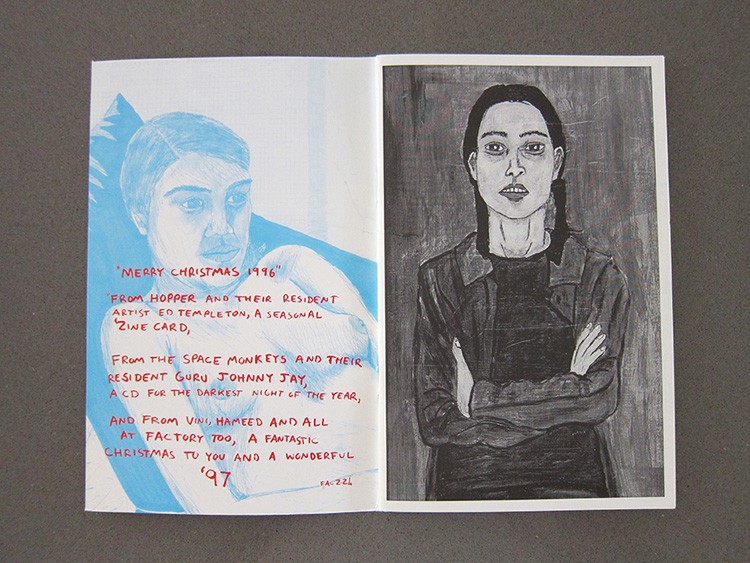 "MERRY CHRISTMAS 1996"
FROM HOPPER AND THEIR RESIDENT
ARTIST ED TEMPLETON, A SEASONAL
'ZINE CARD,
FROM THE SPACE MONKEYS AND THEIR
RESIDENT GURU JOHNNY JAY,
A CD FOR THE DARKEST NIGHT OF THE YEAR,
AND FROM VINI, HAMEED AND ALL
AT FACTORY TOO, A FANTASTIC
CHRISTMAS TO YOU AND A WONDERFUL
'97